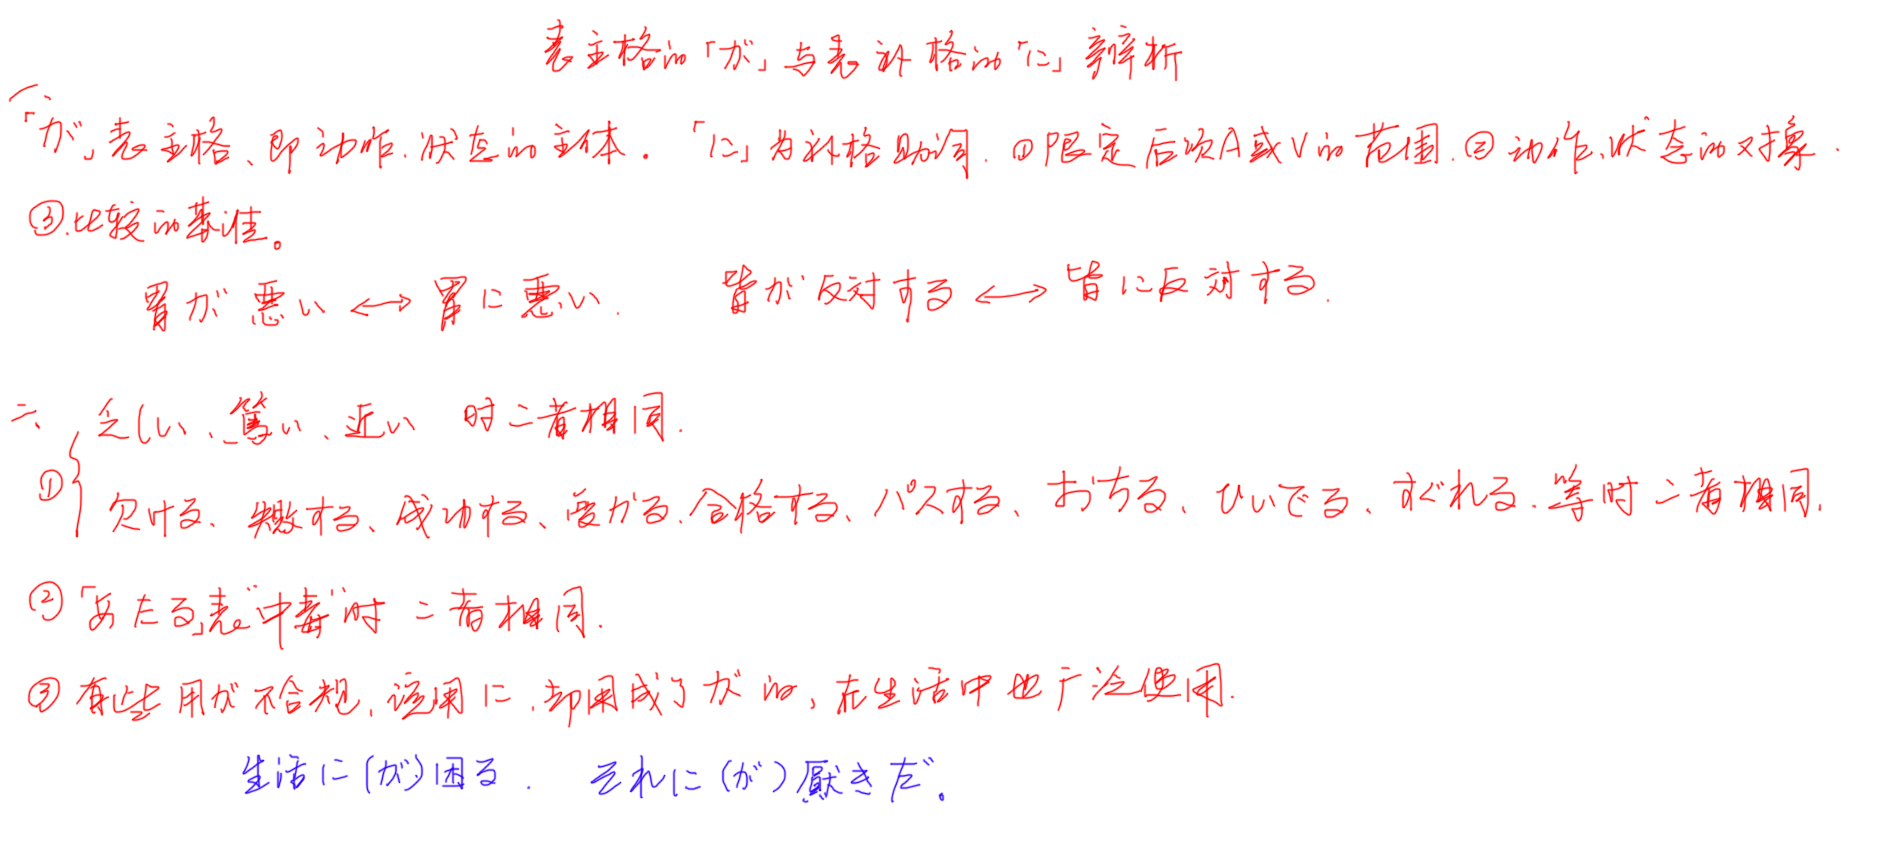 表主格的「が」与表补格的「に」辨析
一、
「が」表主格、即动作、状态的主体。「に」为补格助词.①限定后项A或V的范围.②动作、状态的对象.
③.比较的基准。
胃が悪い ←→ 胃に悪い. 皆が反対する ←→ 皆に反対する.
二、
① 乏しい、篤い、近い 时二者相同.
欠ける、 する、成功する、受かる、合格する、パスする、おちる、ひいでる、すぐれる.等时二者相同.
②「あたる」表“中毒”时二者相同.
③ 有些用が不合规,该用に,却用成了が的,在生活中也广泛使用.
生活に(が)困る. それに(が)厭きだ。